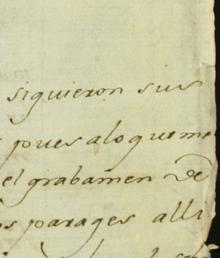 siguieron sus
pues alo que me
el grabamen de
os parages alli